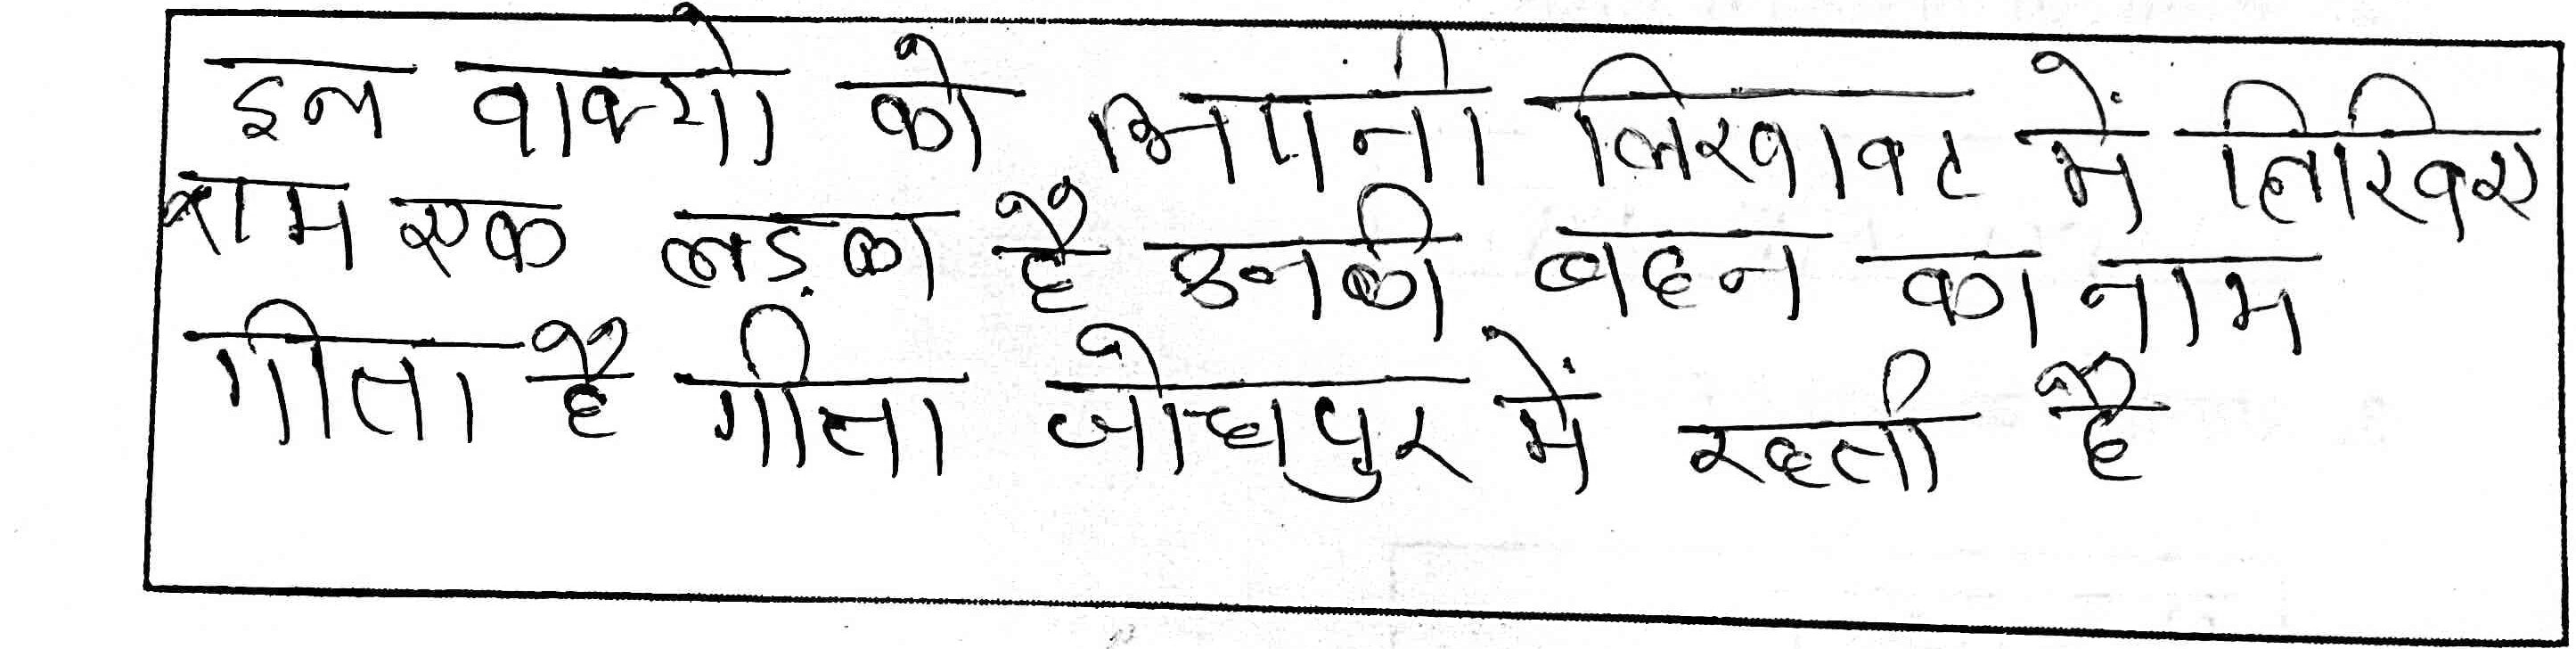 इन वाक्यो को अपनी लिखावट में लिखिए
राम एक लड़का है उनकी बहन का नाम
गीता है गीता जोधपुर में रहती है